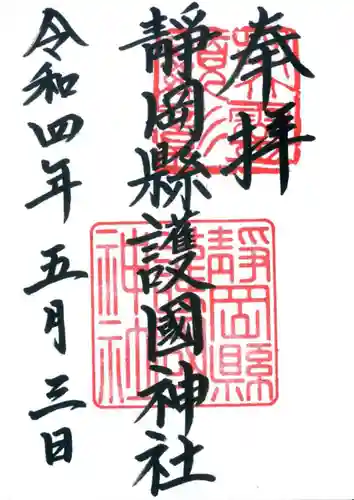 奉拝
靜岡縣護國神社
令和四年 五月三日
靜岡縣
神社